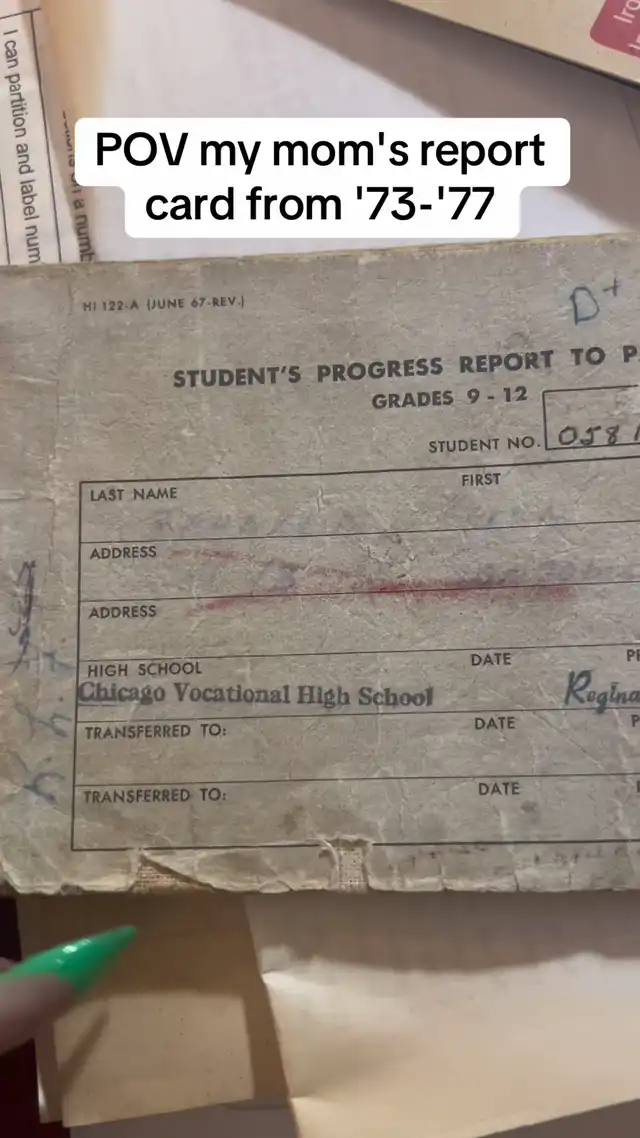 I can partition and label num
POV my mom's report
card from '73-'77
HI 122-A (JUNE 67-REV.)
D+
STUDENT'S PROGRESS REPORT TO P
GRADES 9 - 12
STUDENT NO. 0581
LAST NAME FIRST
ADDRESS
ADDRESS
HIGH SCHOOL DATE
Chicago Vocational High School Regina
TRANSFERRED TO: DATE P
TRANSFERRED TO: DATE